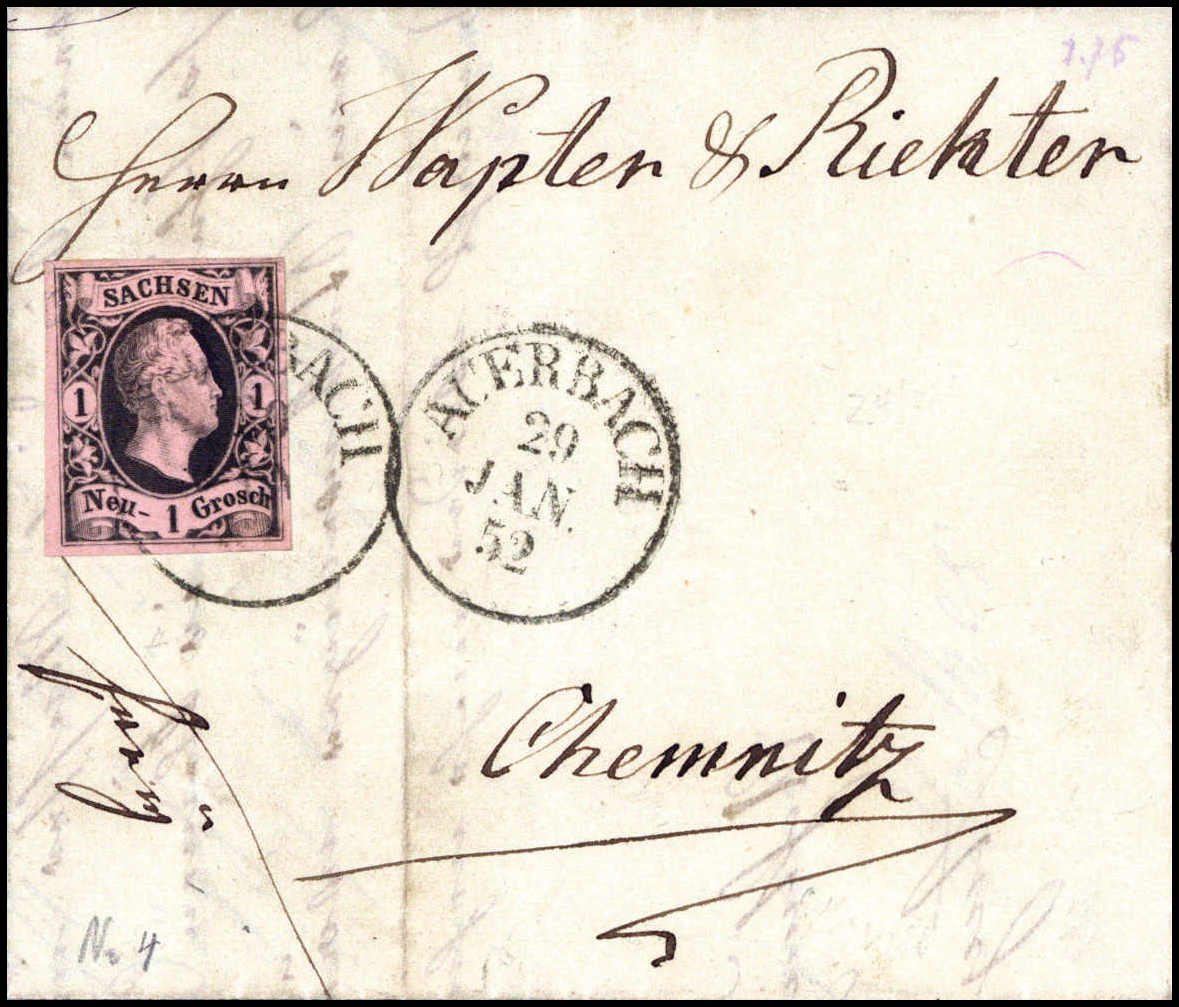 Herrn Wapler & Richter
SACHSEN
1 1
Neu- 1 Grosch
BACH
AUERBACH
29
JAN.
52
Chemnitz
franco
No 4